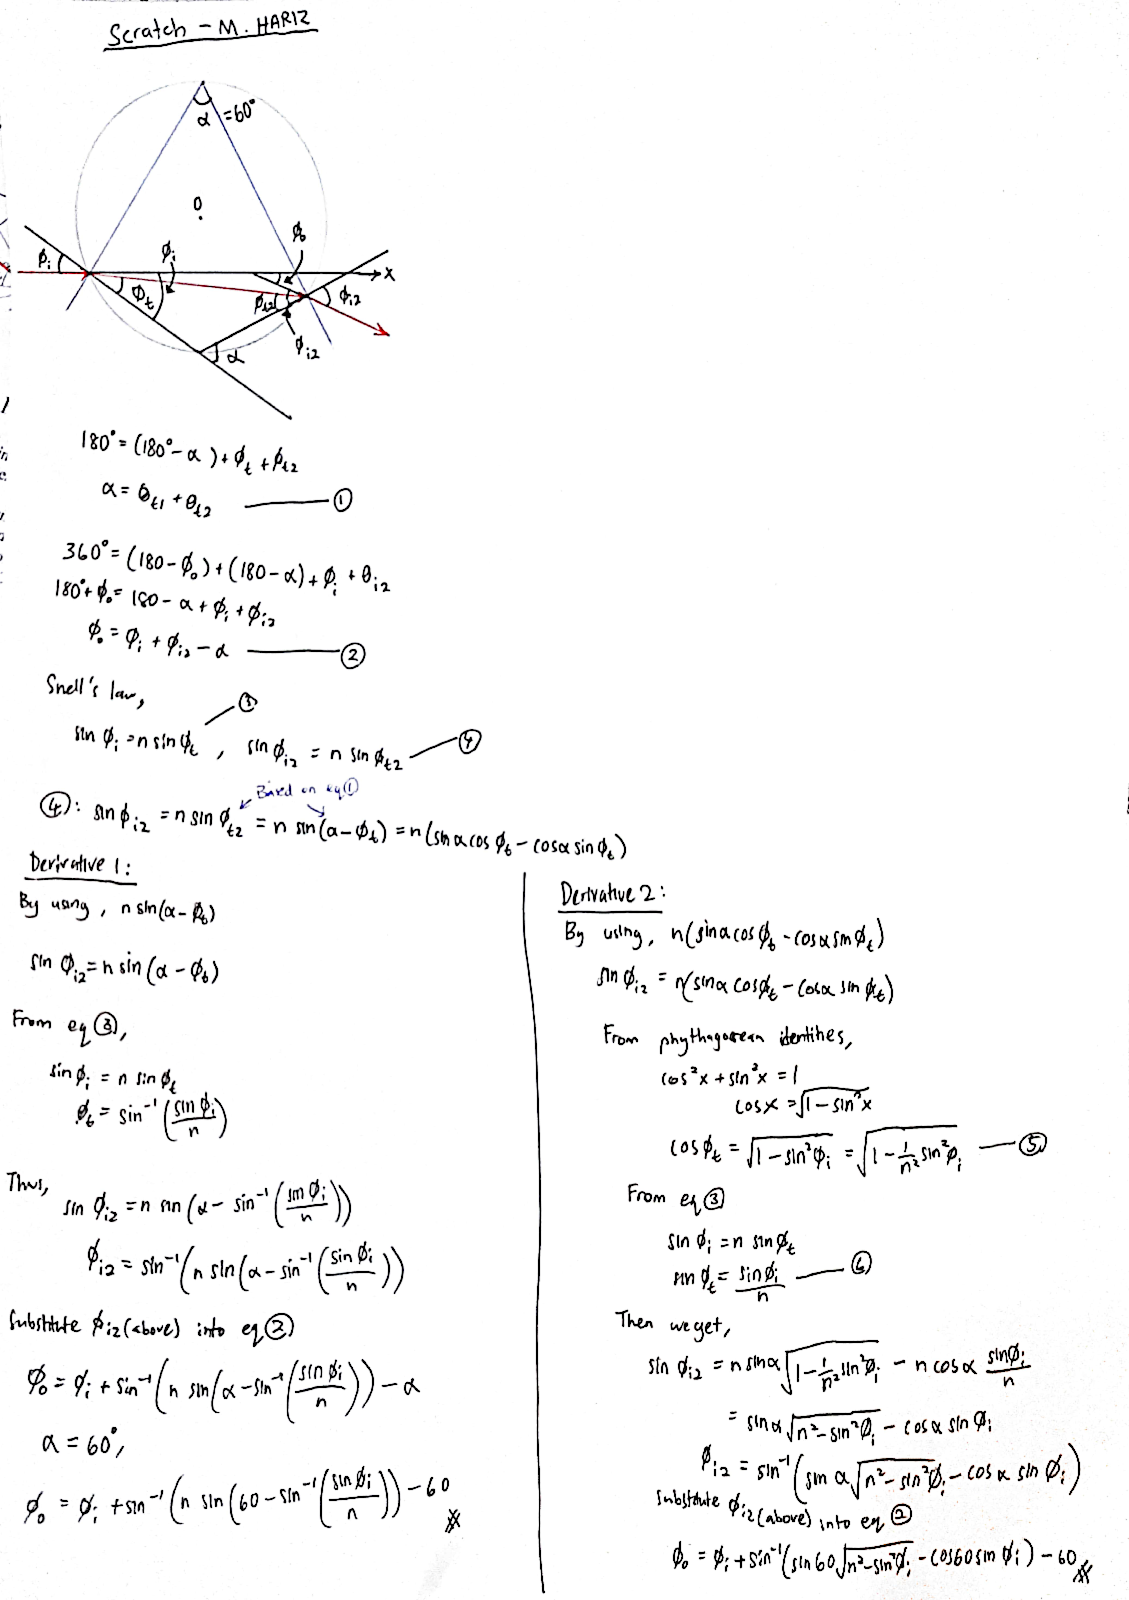 Scratch – M. HARIZ
α = 60°
O
ϕo
ϕi
ϕi
x
ϕt
ϕt2
ϕi2
ϕi2
α
180° = (180° - α) + ϕt + ϕt2
α = θt1 + θt2 ——— ①
360° = (180 - ϕo) + (180 - α) + ϕi + θi2
180° + ϕo = 180 - α + ϕi + ϕi2
ϕo = ϕi + ϕi2 - α ——— ②
Snell's law,
sin ϕi = n sin ϕt — ③ , sin ϕi2 = n sin ϕt2 — ④
Based on eq ①
④: sin ϕi2 = n sin ϕt2 = n sin(α - ϕt) = n(sin α cos ϕt - cos α sin ϕt)
Derivative 1:
By using, n sin(α - ϕt)
sin ϕi2 = n sin (α - ϕt)
From eq ③,
sin ϕi = n sin ϕt
ϕt = sin⁻¹ (sin ϕi / n)
Thus,
sin ϕi2 = n sin (α - sin⁻¹ (sin ϕi / n))
ϕi2 = sin⁻¹ (n sin (α - sin⁻¹ (sin ϕi / n)))
Substitute ϕi2 (above) into eq ②
ϕo = ϕi + sin⁻¹ (n sin (α - sin⁻¹ (sin ϕi / n))) - α
α = 60°,
ϕo = ϕi + sin⁻¹ (n sin (60 - sin⁻¹ (sin ϕi / n))) - 60
Derivative 2:
By using, n(sin α cos ϕt - cos α sin ϕt)
sin ϕi2 = n(sin α cos ϕt - cos α sin ϕt)
From phythagorean identities,
cos²x + sin²x = 1
cos x = √(1 - sin²x)
cos ϕt = √(1 - sin²ϕi) = √(1 - 1/n² sin²ϕi) — ⑤
From eq ③
sin ϕi = n sin ϕt
sin ϕt = sin ϕi / n — ⑥
Then we get,
sin ϕi2 = n sin α √(1 - 1/n² sin²ϕi) - n cos α sin ϕi / n
= sin α √(n² - sin²ϕi) - cos α sin ϕi
ϕi2 = sin⁻¹ (sin α √(n² - sin²ϕi) - cos α sin ϕi)
Substitute ϕi2 (above) into eq ②
ϕo = ϕi + sin⁻¹ (sin 60 √(n² - sin²ϕi) - cos 60 sin ϕi) - 60